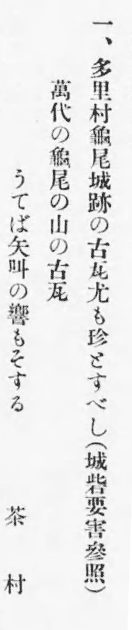 一、多里村龜尾城跡の古瓦尤も珍とすべし(城砦要害參照)
萬代の龜尾の山の古瓦
うてば矢叫の響もそする
茶村